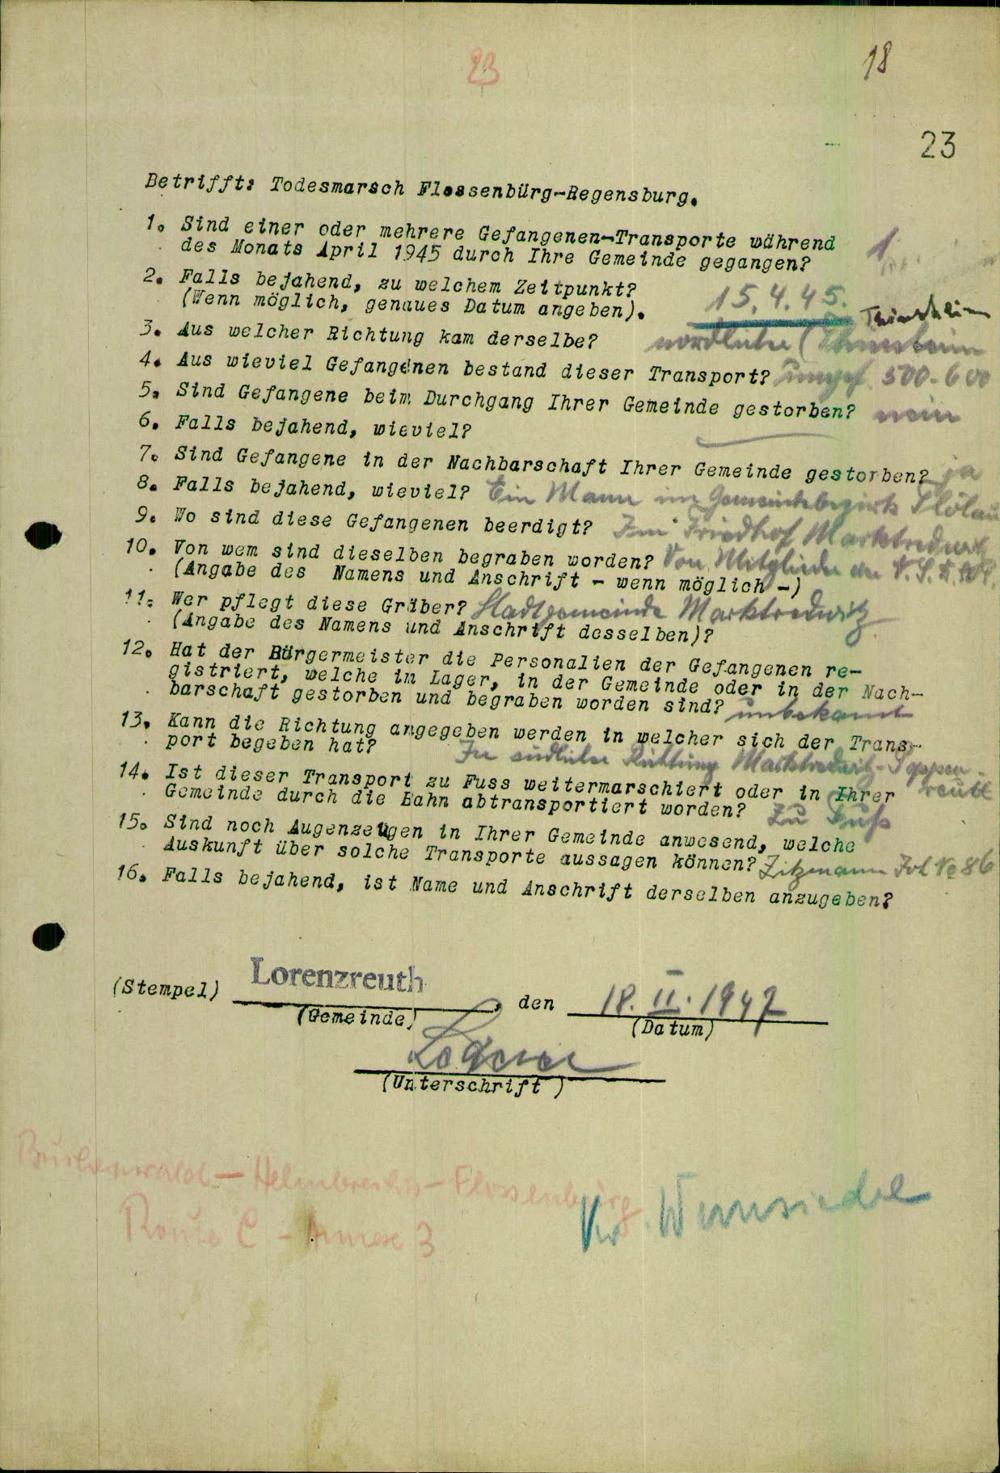 23
18
23
Betrifft: Todesmarsch Flossenbürg-Regensburg.
1. Sind einer oder mehrere Gefangenen-Transporte während 1
des Monats April 1945 durch Ihre Gemeinde gegangen?
2. Falls bejahend, zu welchem Zeitpunkt?
(Wenn möglich, genaues Datum angeben). 15.4.45.
Thiersheim
3. Aus welcher Richtung kam derselbe? nördlicher (
4. Aus wieviel Gefangenen bestand dieser Transport? ungef. 500-600
5. Sind Gefangene beim Durchgang Ihrer Gemeinde gestorben? nein
6. Falls bejahend, wieviel?
7. Sind Gefangene in der Nachbarschaft Ihrer Gemeinde gestorben? ja
8. Falls bejahend, wieviel? Ein Mann im Gemeindebezirk Lölau
9. Wo sind diese Gefangenen beerdigt? Im Friedhof Marktredwitz
10. Von wem sind dieselben begraben worden? Von Mitglieder der N.S.D.A.P.
(Angabe des Namens und Anschrift - wenn möglich -)
11. Wer pflegt diese Gräber? Stadtgemeinde Marktredwitz
(Angabe des Namens und Anschrift desselben)?
12. Hat der Bürgermeister die Personalien der Gefangenen re-
gistriert, welche im Lager, in der Gemeinde oder in der Nach-
barschaft gestorben und begraben worden sind? unbekannt
13. Kann die Richtung angegeben werden in welcher sich der Trans-
port begeben hat? In südlicher Richtung Marktredwitz-
reuth
14. Ist dieser Transport zu Fuss weitermarschiert oder in Ihrer
Gemeinde durch die Bahn abtransportiert worden? Zu Fuß
15. Sind noch Augenzeugen in Ihrer Gemeinde anwesend, welche
Auskunft über solche Transporte aussagen können? Zitzmann Joh № 86
16. Falls bejahend, ist Name und Anschrift derselben anzugeben?
(Stempel) Lorenzreuth, den 18. II. 1947
(Gemeinde) (Datum)
(Unterschrift)
Buchenwald - Helmbrechts - Flossenbürg
Route C - Annexe 3
Kr. Wunsiedel